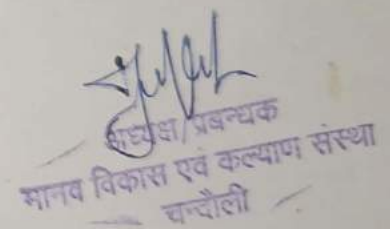 अध्यक्ष/प्रबन्धक
मानव विकास एवं कल्याण संस्था
चन्दौली